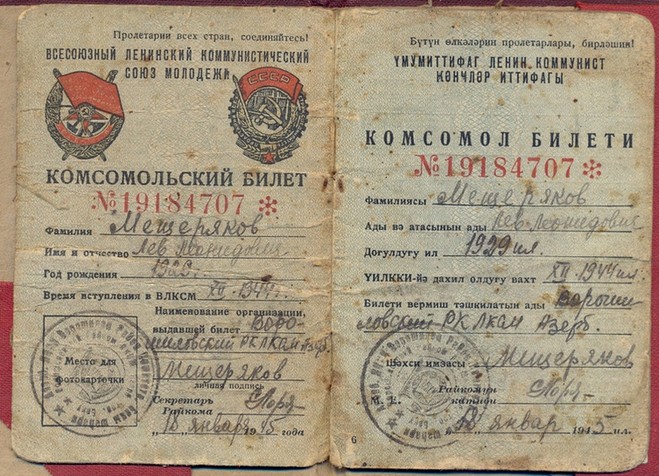 Пролетарии всех стран, соединяйтесь!
ВСЕСОЮЗНЫЙ ЛЕНИНСКИЙ КОММУНИСТИЧЕСКИЙ
СОЮЗ МОЛОДЕЖИ
СССР
КОМСОМОЛЬСКИЙ БИЛЕТ
№19184707 *
Фамилия Мещеряков
Имя и отчество Лев Леонидович
Год рождения 1929 г.
Время вступления в ВЛКСМ XII-1944 г.
Наименование организации,
выдавшей билет Воро-
шиловский РКЛКАМ Азерб.
Место для
фотокарточки
Мещеряков
личная подпись
Секретарь
Райкома
января 1945 года
Бүтүн өлкәләрин пролетарлары, бирләшин!
ҮМУМИТТИФАГ ЛЕНИН КОММУНИСТ
КӘНЧЛӘР ИТТИФАГЫ
КОМСОМОЛ БИЛЕТИ
№19184707 *
Фамилиясы Мещеряков
Ады вә атасынын ады Лев Леонидович
Догулдугу ил 1929 ил.
ҮИЛККИ-йә дахил олдугу вахт XII-1944 ил.
Билети вермиш тәшкилатын ады Вороши
ловский РКЛКАМ Азерб.
Шәхси имзасы Мещеряков
М. Е.
Райкомун
катиби
январ 1945 ил.
6